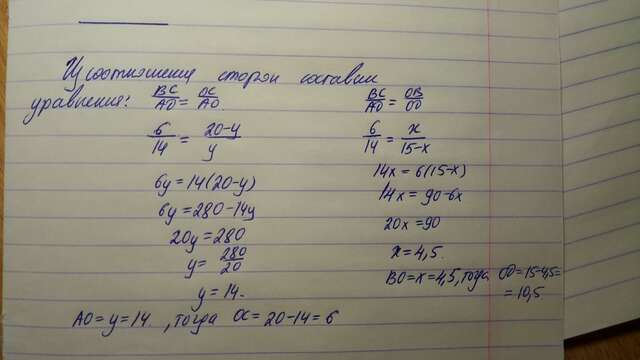 Из соотношения сторон составим
уравнения: BC/AD = OC/AO
6/14 = 20-y/y
6y = 14(20-y)
6y = 280-14y
20y = 280
y = 280/20
y = 14.
AO = y = 14. , тогда OC = 20-14 = 6
BC/AD = OB/OD
6/14 = x/15-x
14x = 6(15-x)
14x = 90-6x
20x = 90
x = 4,5.
BO = x = 4,5, тогда OD = 15-4,5 =
= 10,5